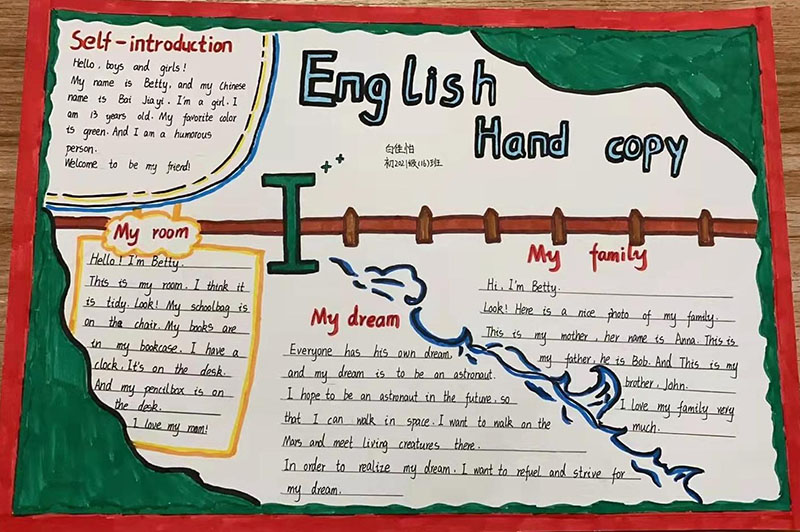 Self-introduction
Hello, boys and girls!
My name is Betty, and my Chinese
name is Bai Jiayi. I'm a girl. I
am 13 years old. My favorite color
is green. And I am a humorous
person.
Welcome to be my friend!
English
Hand copy
白佳怡
初2021级(16)班
I
My room
Hello! I'm Betty.
This is my room. I think it
is tidy. Look! My schoolbag is
on the chair. My books are
in my bookcase. I have a
clock, It's on the desk.
And my pencilbox is on
the desk.
I love my room!
My dream
Everyone has his own dream,
and my dream is to be an astronaut.
I hope to be an astronaut in the future, so
that I can walk in space. I want to walk on the
Mars and meet living creatures there.
In order to realize my dream. I want to refuel and strive for
my dream.
My family
Hi, I'm Betty.
Look! Here is a nice photo of my family.
This is my mother, her name is Anna. This is
my father, he is Bob. And This is my
brother, John.
I love my family very
much.